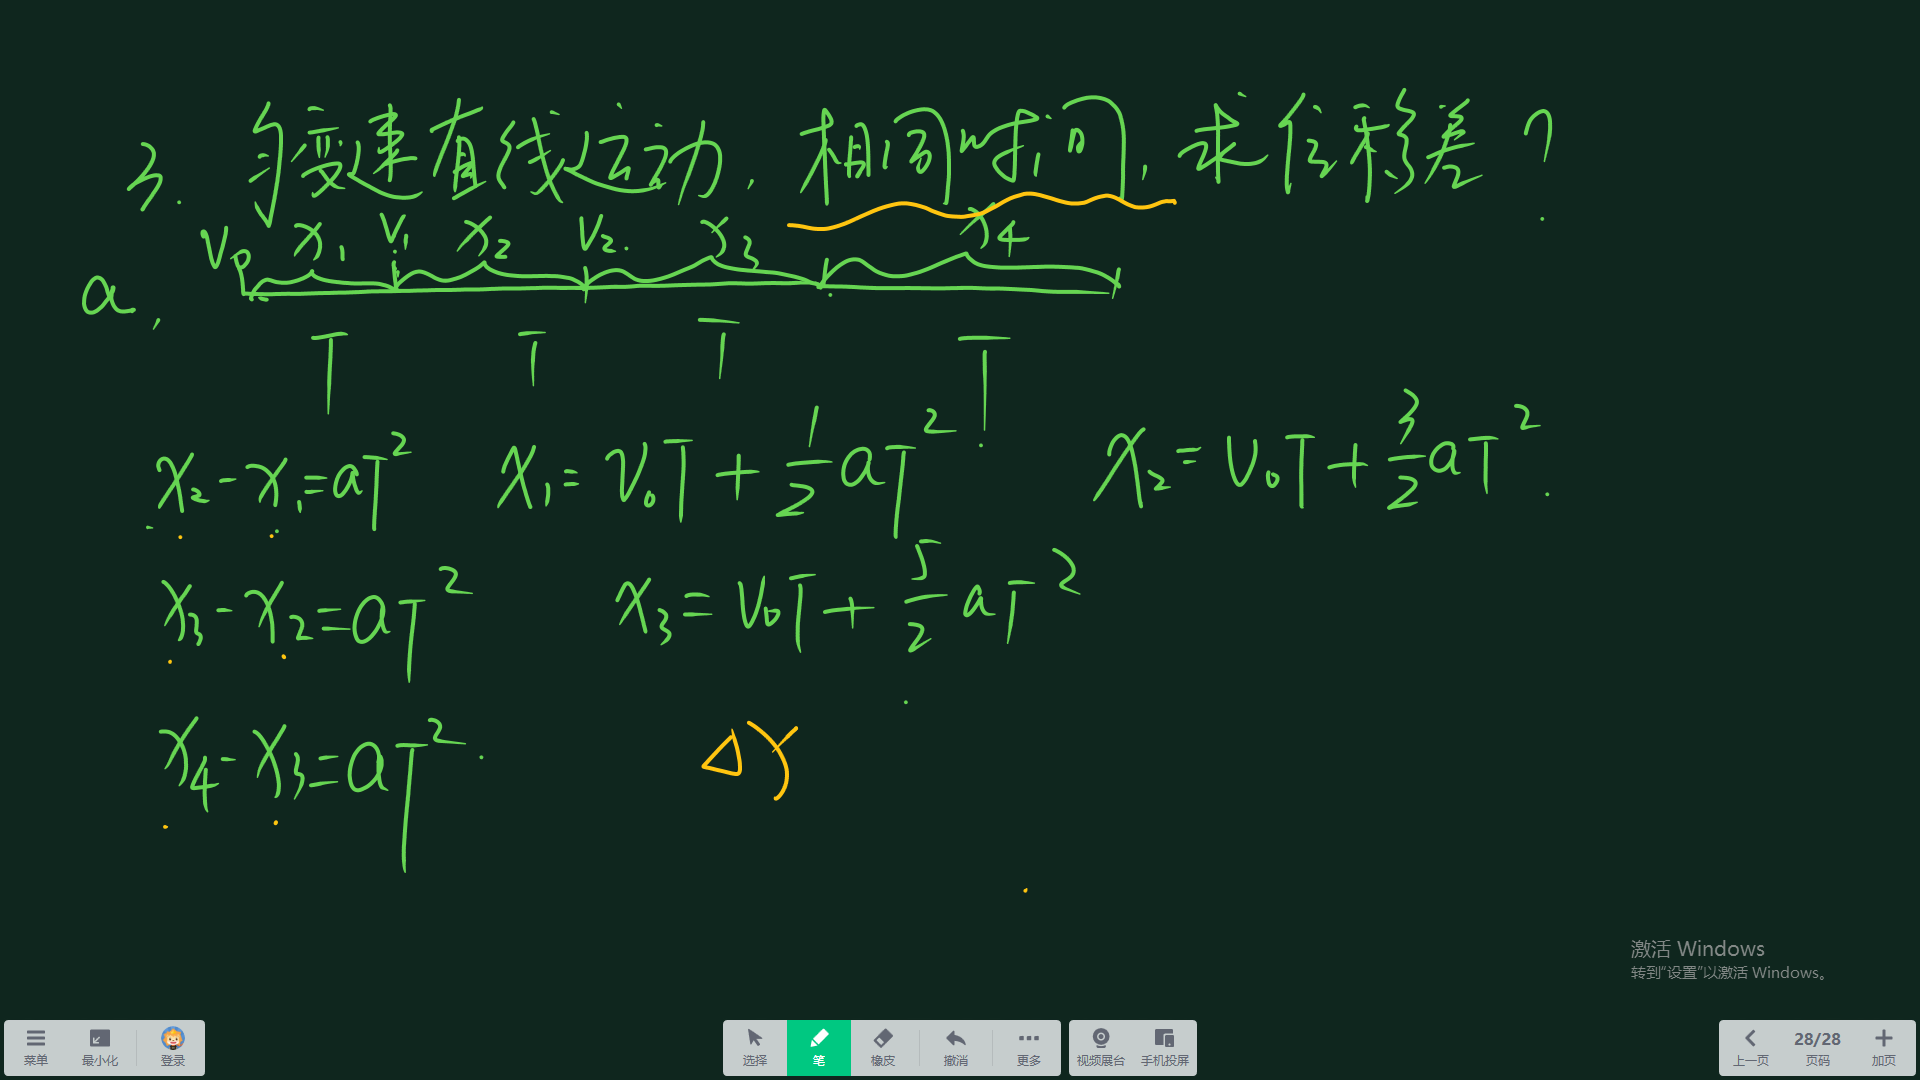 3. 匀变速直线运动, 相同时间, 求位移差?
a, v₀ x₁ v₁ x₂ v₂ x₃ x₄
T T T T
x₂-x₁=aT² x₁=v₀T+½aT² x₂=v₀T+3/2aT²
x₃-x₂=aT² x₃=v₀T+5/2aT²
x₄-x₃=aT² Δx
激活 Windows
转到“设置”以激活 Windows。
菜单 最小化 登录 选择 笔 橡皮 撤消 更多 视频展台 手机投屏 上一页 28/28 页码 加页